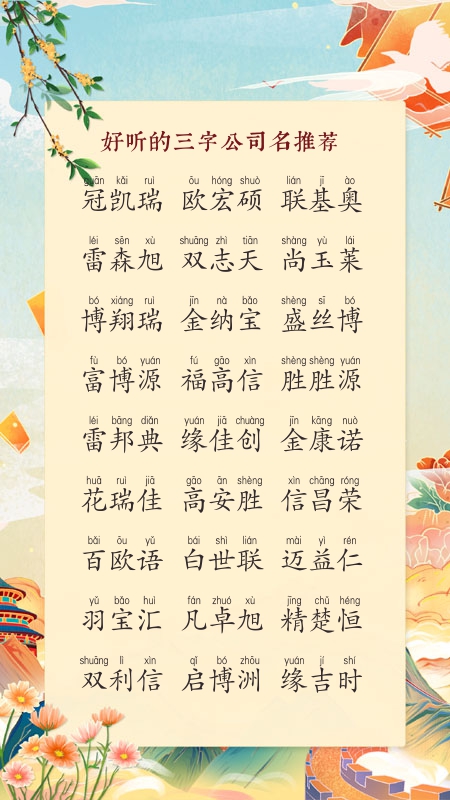 好听的三字公司名推荐
guān kǎi ruì ōu hóng shuò lián jī ào
冠凯瑞 欧宏硕 联基奥
léi sēn xù shuāng zhì tiān shàng yù lái
雷森旭 双志天 尚玉莱
bó xiáng ruì jīn nà bǎo shèng sī bó
博翔瑞 金纳宝 盛丝博
fù bó yuán fú gāo xìn shèng shèng yuán
富博源 福高信 胜胜源
léi bāng diǎn yuán jiā chuàng jīn kāng nuò
雷邦典 缘佳创 金康诺
huā ruì jiā gāo ān shèng xìn chāng róng
花瑞佳 高安胜 信昌荣
bǎi ōu yǔ bái shì lián mài yì rén
百欧语 白世联 迈益仁
yǔ bǎo huì fán zhuó xù jīng chǔ héng
羽宝汇 凡卓旭 精楚恒
shuāng lì xìn qǐ bó zhōu yuán jí shí
双利信 启博洲 缘吉时